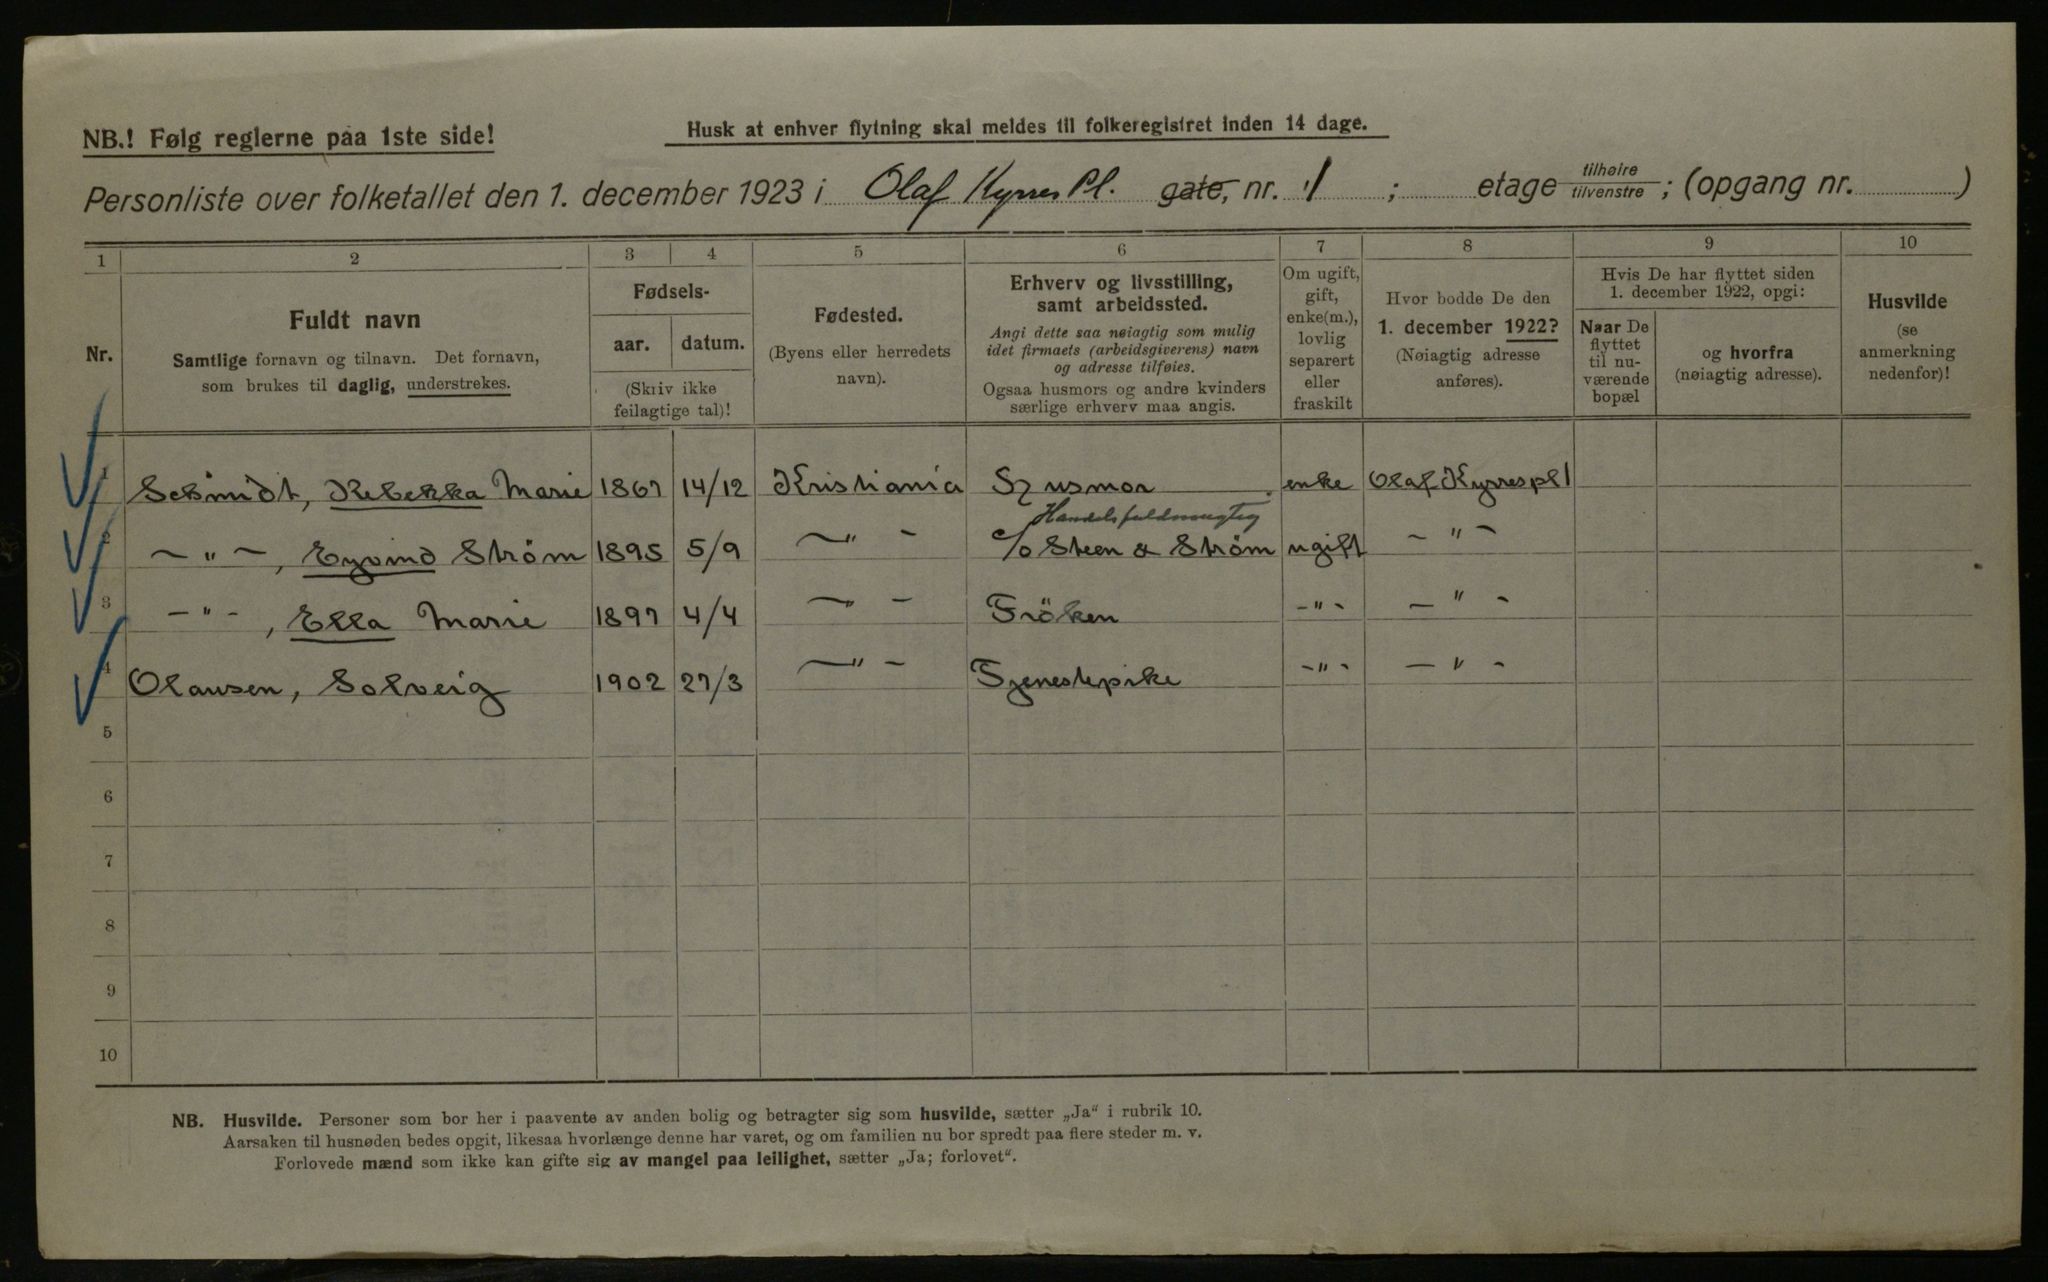 NB.! Følg reglerne paa 1ste side!
Husk at enhver flytning skal meldes til folkeregistret inden 14 dage.
Personliste over folketallet den 1. december 1923 i Olaf Kyrres Pl. gate, nr. 1 ; etage tilhøire/tilvenstre ; (opgang nr. )
1 2 3 4 5 6 7 8 9 10
Nr.
Fuldt navn
Samtlige fornavn og tilnavn. Det fornavn,
som brukes til daglig, understrekes.
Fødsels-
aar. datum.
(Skriv ikke
feilagtige tal)!
Fødested.
(Byens eller herredets
navn).
Erhverv og livsstilling,
samt arbeidssted.
Angi dette saa nøiagtig som mulig
idet firmaets (arbeidsgiverens) navn
og adresse tilføies.
Ogsaa husmors og andre kvinders
særlige erhverv maa angis.
Om ugift,
gift,
enke(m.),
lovlig
separert
eller
fraskilt
Hvor bodde De den
1. december 1922?
(Nøiagtig adresse
anføres).
Hvis De har flyttet siden
1. december 1922, opgi:
Naar De
flyttet
til nu-
værende
bopæl
og hvorfra
(nøiagtig adresse).
Husvilde
(se
anmerkning
nedenfor)!
1 Schmidt, Rebekka Marie 1867 14/12 Kristiania Husmor enke Olaf Kyrres pl 1
Handelsfuldmægtig
2 — " —, Eyvind Strøm 1895 5/9 — " — c/o Steen & Strøm ugift — " —
3 — " —, Ella Marie 1897 4/4 — " — Fröken — " — — " —
4 Olausen, Solveig 1902 27/3 — " — Tjenestepike — " — — " —
5
6
7
8
9
10
NB. Husvilde. Personer som bor her i paavente av anden bolig og betragter sig som husvilde, sætter „Ja“ i rubrik 10.
Aarsaken til husnøden bedes opgit, likesaa hvorlænge denne har varet, og om familien nu bor spredt paa flere steder m. v.
Forlovede mænd som ikke kan gifte sig av mangel paa leilighet, sætter „Ja; forlovet“.